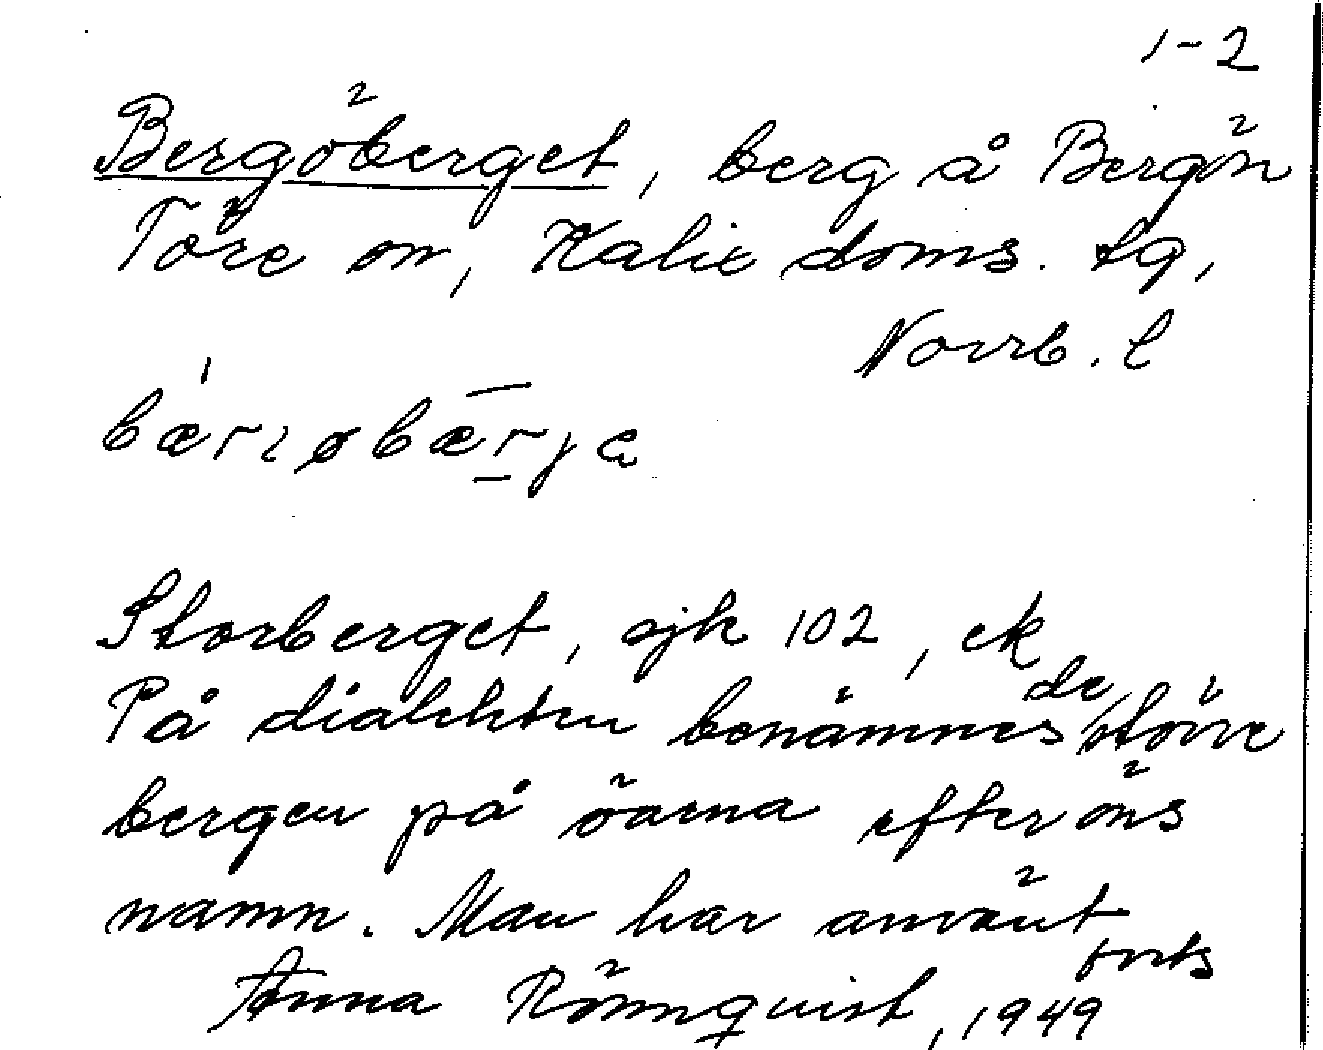 1-2
Bergöberget, berg å Bergön
Töre sn, Kalix doms. lg,
Norrb. l
Storberget, sjk 102, ek
På dialekten benämnes de större
bergen på öarna efter öns
namn. Man har använt
forts
Anna Rönnquist, 1949